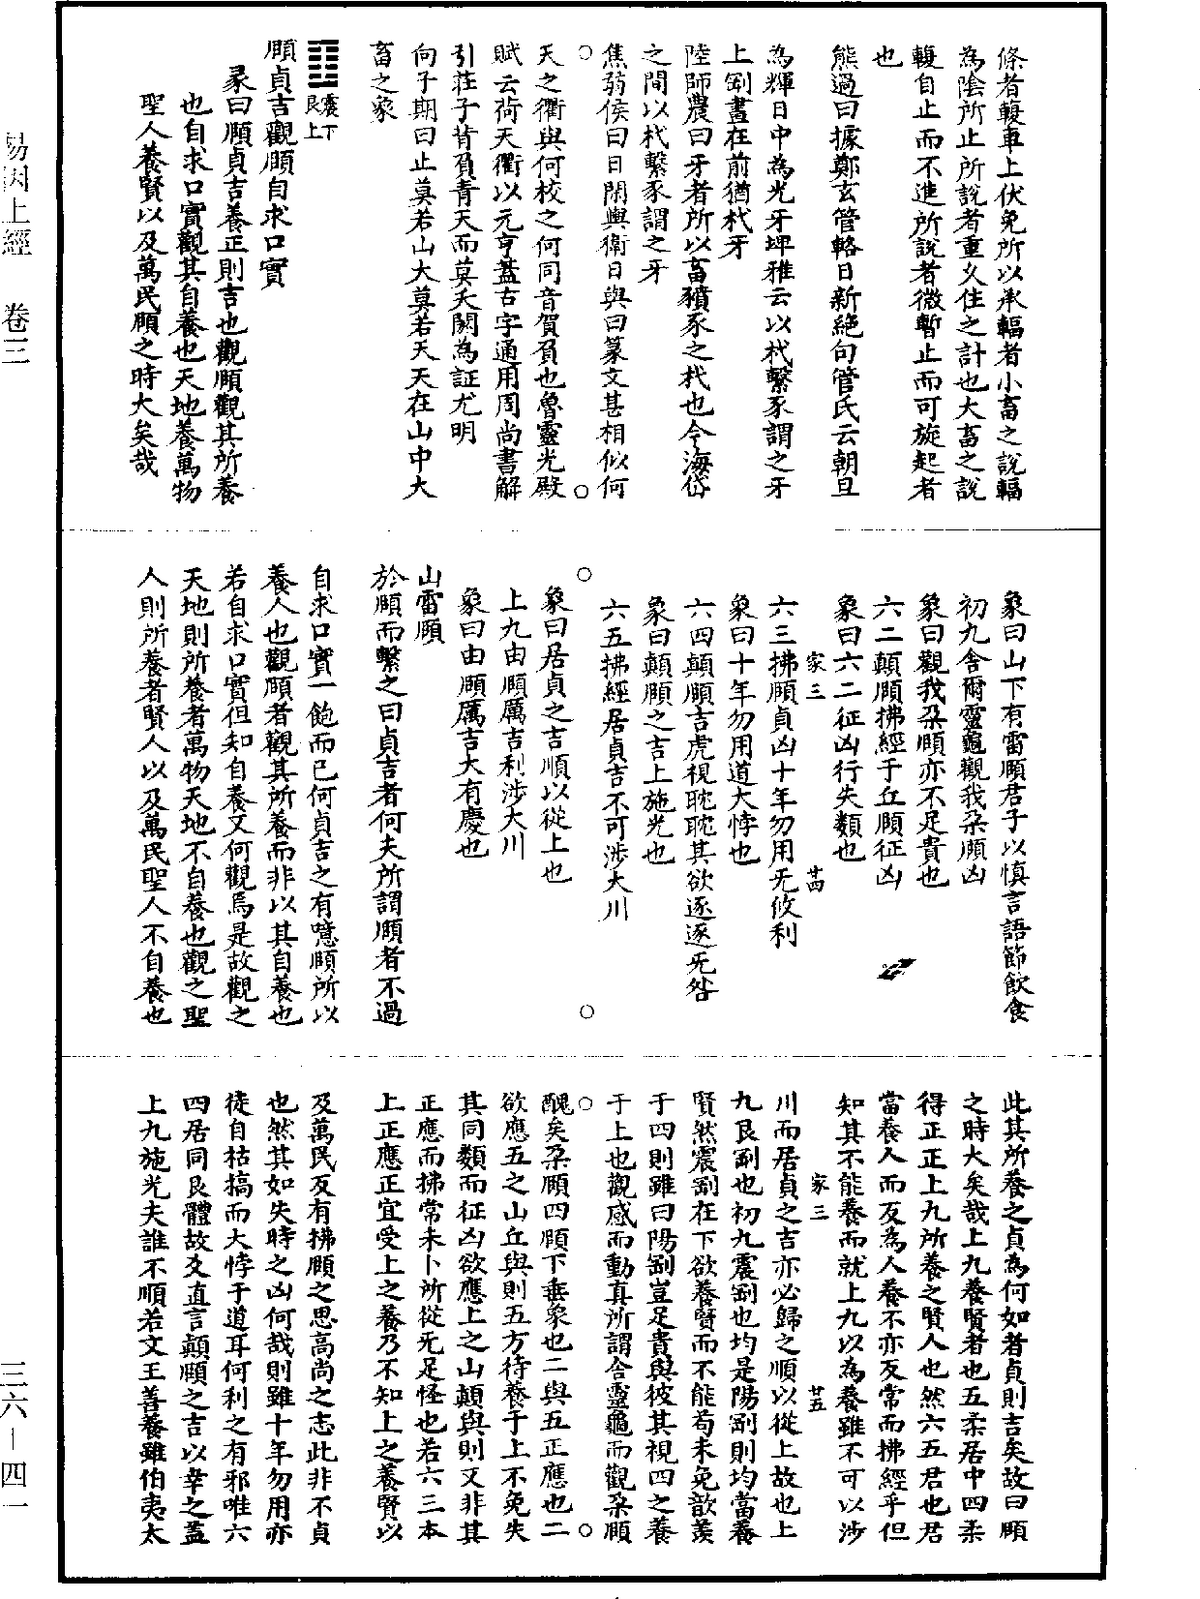 條者輹車上伏兔所以承輻者小畜之說輻
為陰所止所說者重久住之計也大畜之說
輹自止而不進所說者微暫止而可旋起者
也
熊過曰據鄭玄管輅日新絕句管氏云朝旦
為輝日中為光牙埤雅云以杙繫豕謂之牙
上剛畫在前猶杙牙
陸師農曰牙者所以畜豶豕之杙也今海岱
之間以杙繫豕謂之牙
焦弱侯曰日閑輿衛日與曰篆文甚相似何
天之衢與何校之何同音賀負也魯靈光殿
賦云荷天衢以元亨蓋古字通用周尚書解
引莊子背負青天而莫夭閼為証尤明
向子期曰止莫若山大莫若天天在山中大
畜之象
震下
艮上
頤貞吉觀頤自求口實
彖曰頤貞吉養正則吉也觀頤觀其所養
也自求口實觀其自養也天地養萬物
聖人養賢以及萬民頤之時大矣哉
象曰山下有雷頤君子以慎言語節飲食
初九舍爾靈龜觀我朵頤凶
象曰觀我朵頤亦不足貴也
六二顛頤拂經于丘頤征凶
象曰六二征凶行失類也
家三
廿四
六三拂頤貞凶十年勿用无攸利
象曰十年勿用道大悖也
六四顛頤吉虎視眈眈其欲逐逐无咎
象曰顛頤之吉上施光也
六五拂經居貞吉不可涉大川
象曰居貞之吉順以從上也
上九由頤厲吉利涉大川
象曰由頤厲吉大有慶也
山雷頤
於頤而繫之曰貞吉者何夫所謂頤者不過
自求口實一飽而已何貞吉之有噫頤所以
養人也觀頤者觀其所養而非以其自養也
若自求口實但知自養又何觀焉是故觀之
天地則所養者萬物天地不自養也觀之聖
人則所養者賢人以及萬民聖人不自養也
此其所養之貞為何如者貞則吉矣故曰頤
之時大矣哉上九養賢者也五柔居中四柔
得正正上九所養之賢人也然六五君也君
當養人而反為人養不亦反常而拂經乎但
知其不能養而就上九以為養雖不可以涉
家三
廿五
川而居貞之吉亦必歸之順以從上故也上
九艮剛也初九震剛也均是陽剛則均當養
賢然震剛在下欲養賢而不能苟未免歆羡
于四則雖曰陽剛豈足貴與彼其視四之養
于上也觀感而動真所謂舍靈龜而觀朵頤
醜矣朵頤四頤下垂象也二與五正應也二
欲應五之山丘與則五方待養于上不免失
其同類而征凶欲應上之山顛與則又非其
正應而拂常未卜所從无足怪也若六三本
上正應正宜受上之養乃不知上之養賢以
及萬民反有拂頤之思高尚之志此非不貞
也然其如失時之凶何哉則雖十年勿用亦
徒自枯搞而大悖于道耳何利之有邪唯六
四居同艮體故爻直言顛頤之吉以幸之蓋
上九施光夫誰不順若文王善養雖伯夷太
易因上經　卷三
三六－四一